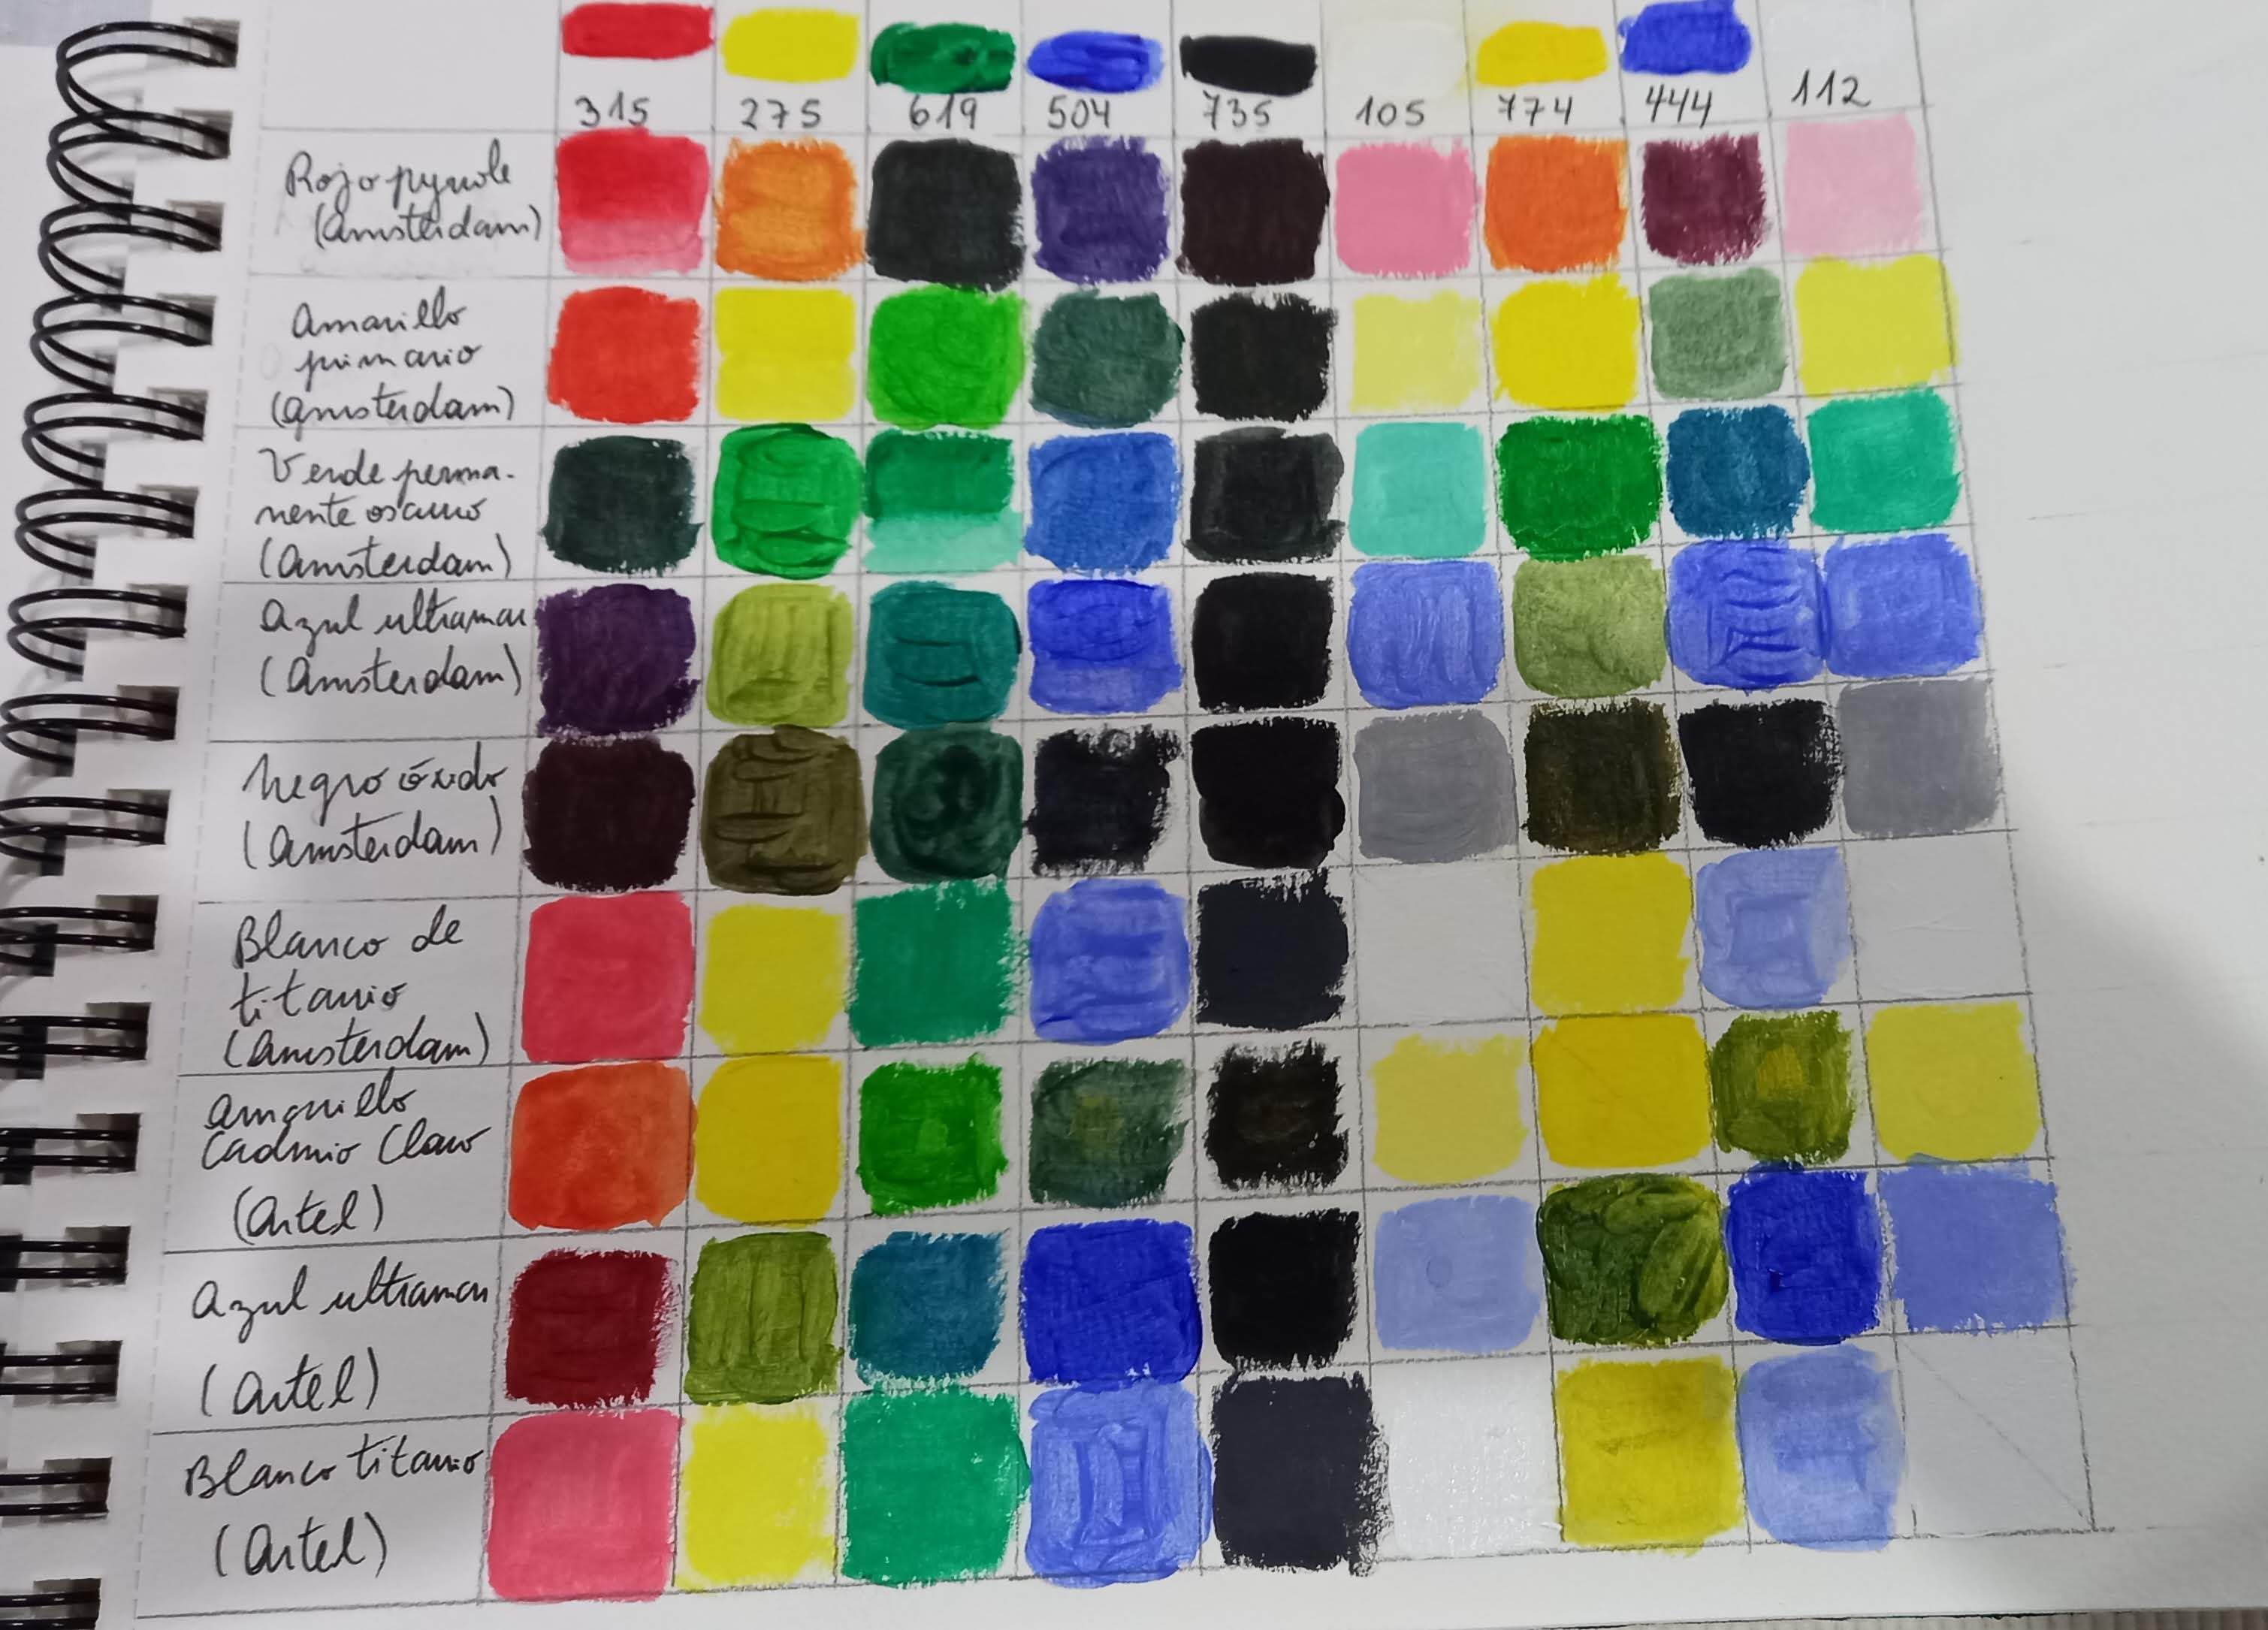 315 275 619 504 735 105 774 444 112
Rojo pyrrole
(Amsterdam)
Amarillo
primario
(Amsterdam)
Verde perma-
nente oscuro
(Amsterdam)
Azul ultramar
(Amsterdam)
Negro óxido
(Amsterdam)
Blanco de
titanio
(Amsterdam)
Amarillo
Cadmio Claro
(Artel)
Azul ultramar
(Artel)
Blanco titanio
(Artel)